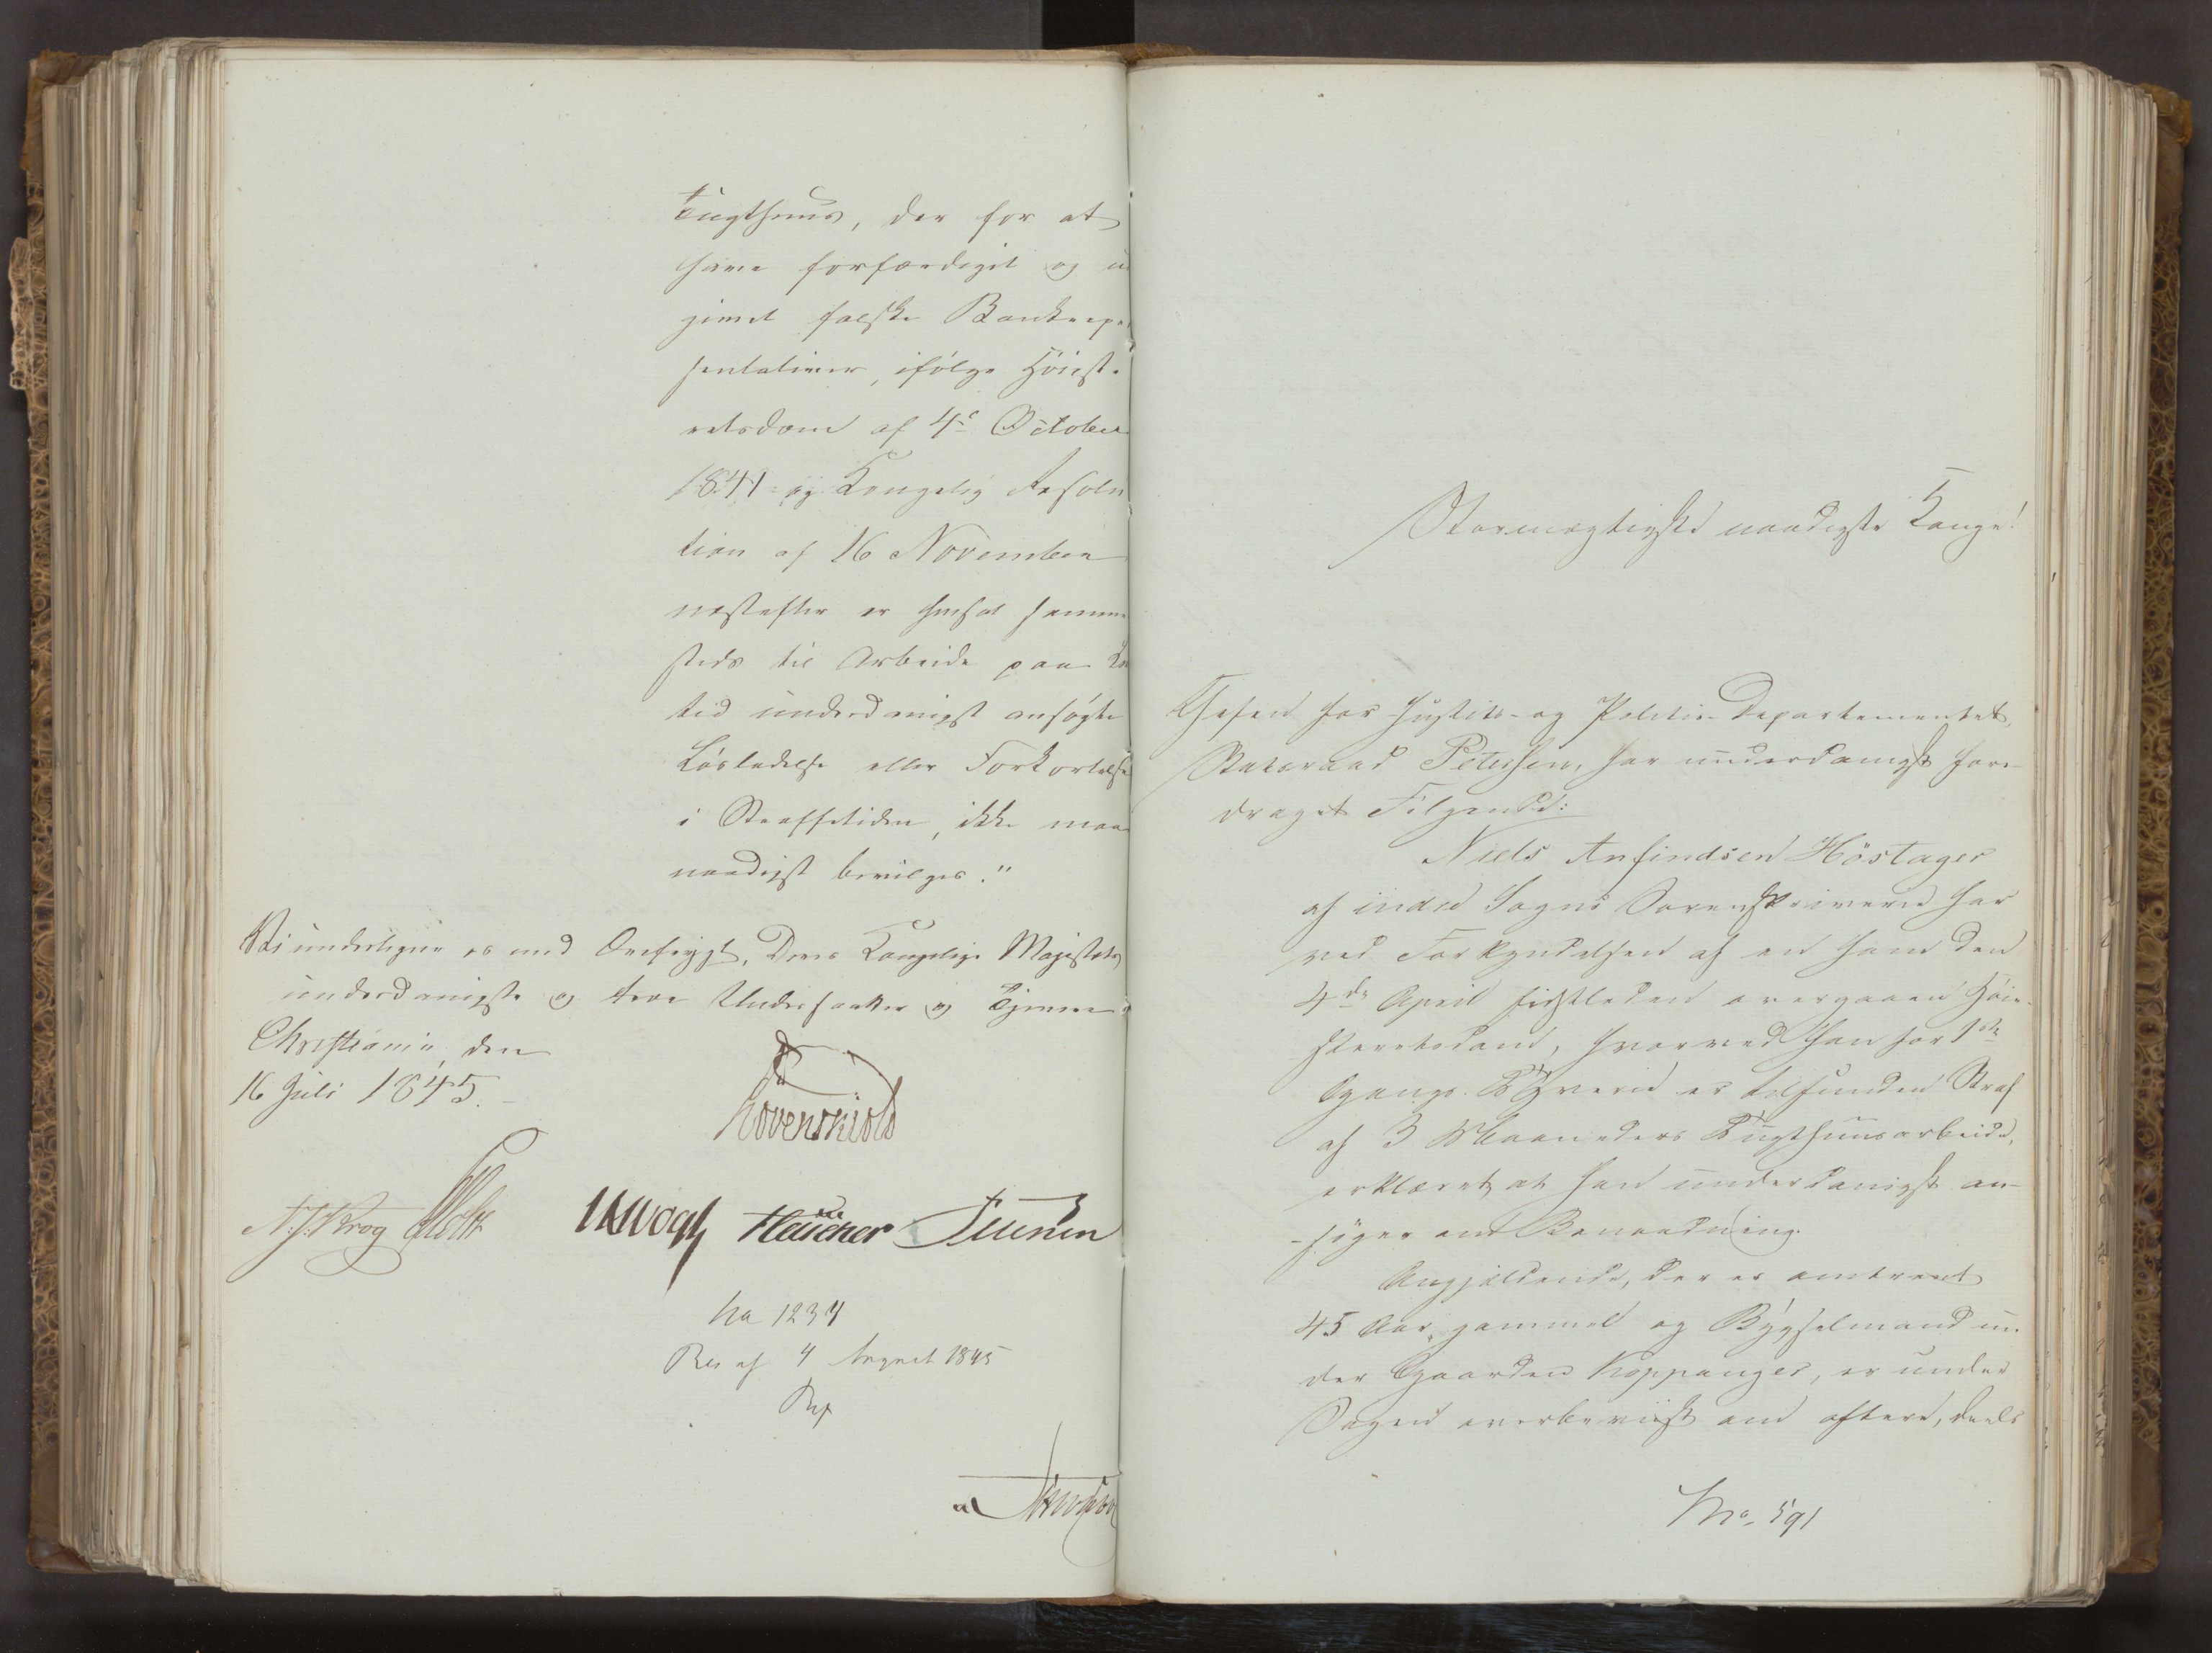 Tugthuus, der for at
have forfærdiget og u
givet falske Bankrepræ
sentativer, ifølge Høieste
retsdom af 4de October
1841 og Kongelig Resolu
tion af 16 November
næstefter er hensat samme
steds til Arbeide paa Livs
tid underdanigst ansøgte
Løsladelse eller Forkortelse
i Straffetiden, ikke maa
naadigst bevilges."
Vi undertegne os med Ærefrygt, Deres Kongelige Majestæts
underdanigste og troe Undersaatter og Tjenere
Christiania, den
16 Juli 1845.
Løvenskiold
N. J. Krog Holst JHVogt Haucher Petersen
No 1234
Res af 4 August 1845
Stormægtigste naadigste Konge!
Chefen for Justits- og Politie-Departementet,
Statsraad Petersen, har underdanigst fore-
draget Følgende:
Niels Anfindsen Höstager
af indre Sogns Sorenskriverie har
ved Forkyndelsen af en ham den
4de April sidstleden overgaaen Høie-
steretsdom, hvorved han for 1ste
Gangs Tyverie er tilfunden Straf
af 3 Maaneders Tugthuusarbeide,
erklæret at han underdanigst an-
søger om Benaadning.
Angjældende, der er omtrent
45 Aar gammel og Bygselmand un-
der Gaarden Kroppanger, er under
Sagen overbeviist om oftere, deels
No. 591